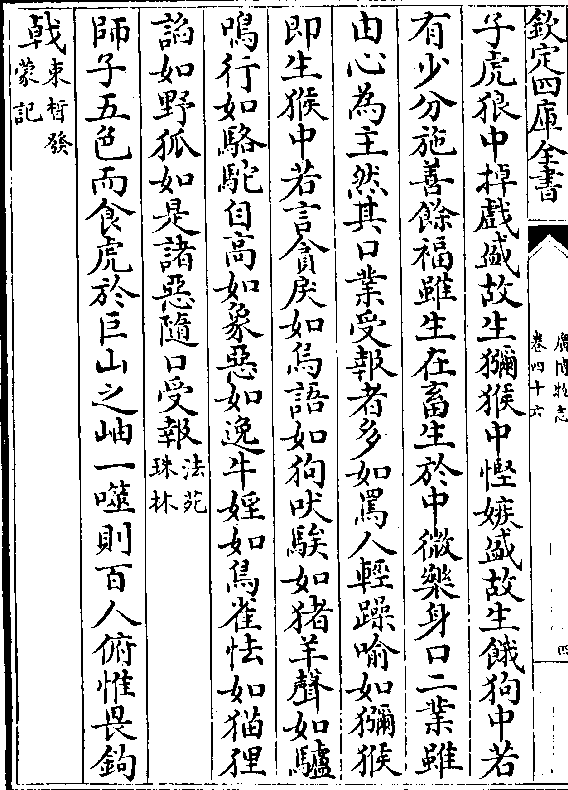 欽定四庫全書
廣博物志
卷四十六
四
子虎狼中掉戲盛故生獼猴中慳嫉盛故生餓狗中若
有少分施善餘福雖生在畜生於中微樂身口二業雖
由心為主然其口業受報者多如罵人輕躁喻如獼猴
即生猴中若言貪戾如烏語如狗吠騃如猪羊聲如驢
鳴行如駱駝自高如象惡如逸牛婬如鳥雀怯如猫狸
諂如野狐如是諸惡隨口受報法苑
珠林
師子五色而食虎於巨山之岫一噬則百人俯惟畏鉤
戟束晳發
蒙記